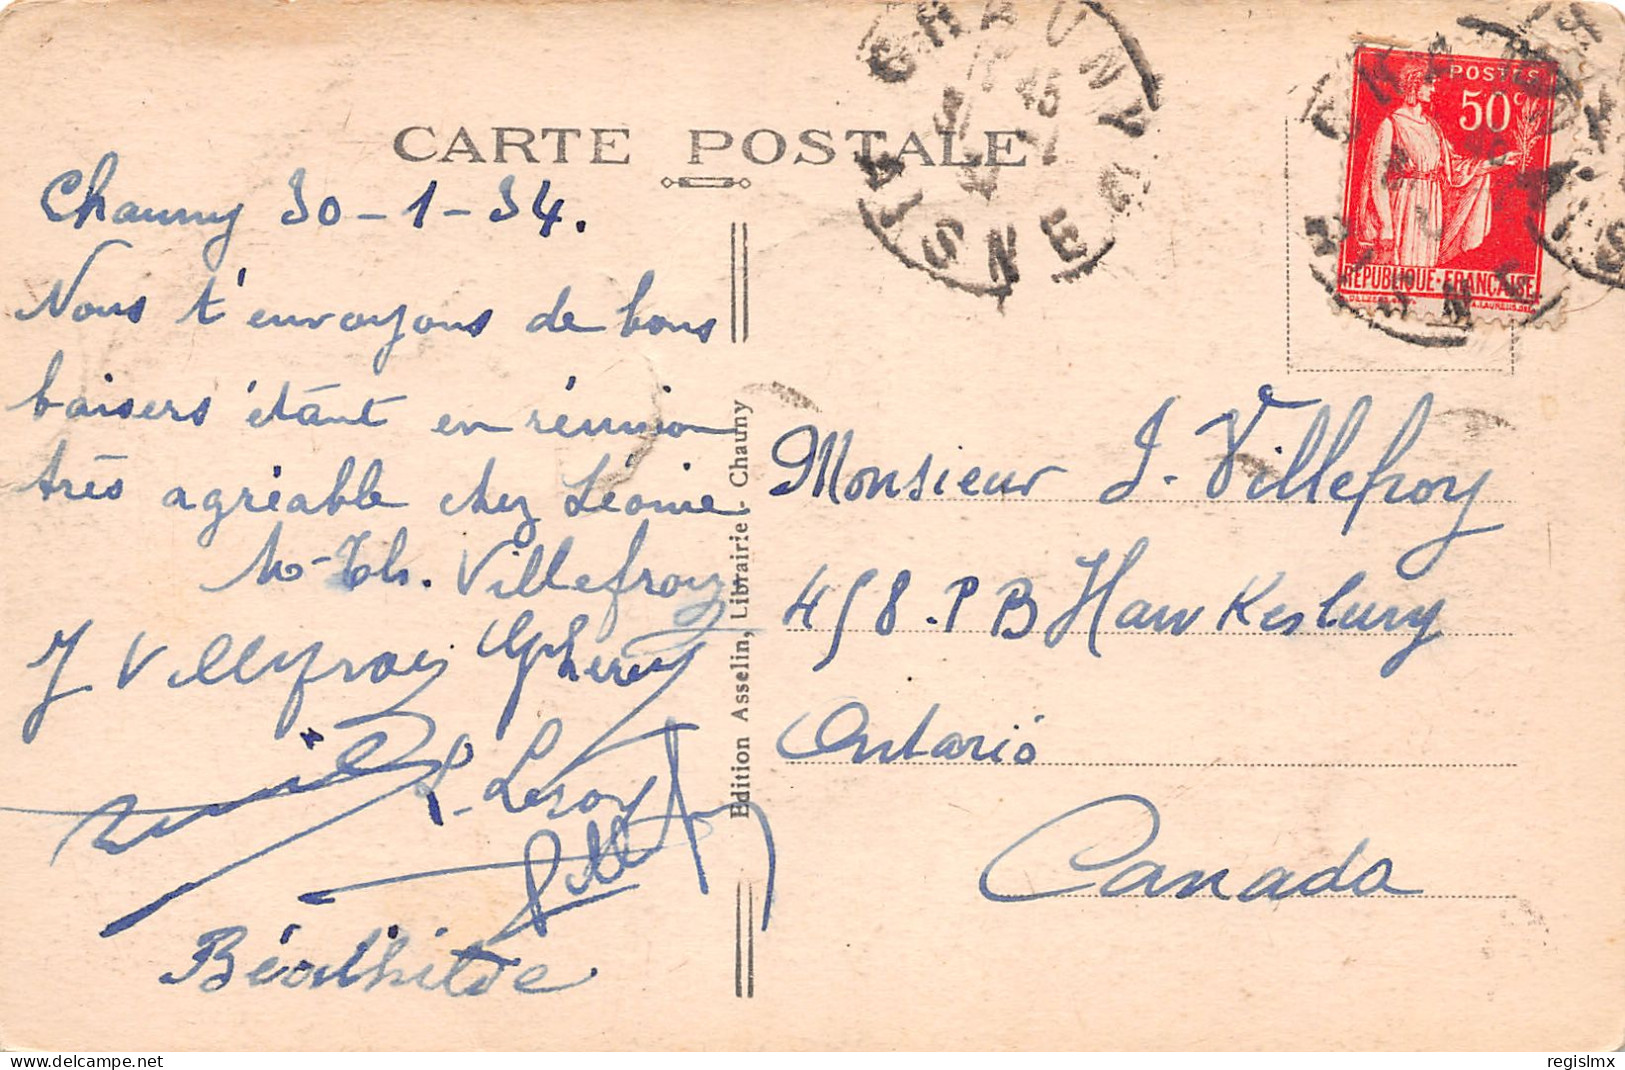 CARTE POSTALE
Chauny 30-1-34.
Nous t'envoyons de bons
baisers étant en réunion
très agréable chez Léonie.
M-Th. Villefroy
J Villefroy
L. Leroy
Edition Asselin, Librairie - Chauny
CHAUNY
AISNE
POSTES
50c
REPUBLIQUE·FRANCAISE
Monsieur J. Villefroy
458. P B Hawkesbury
Ontario
Canada
regislmx